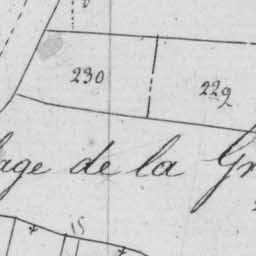 230
229
lage de la Gr
15